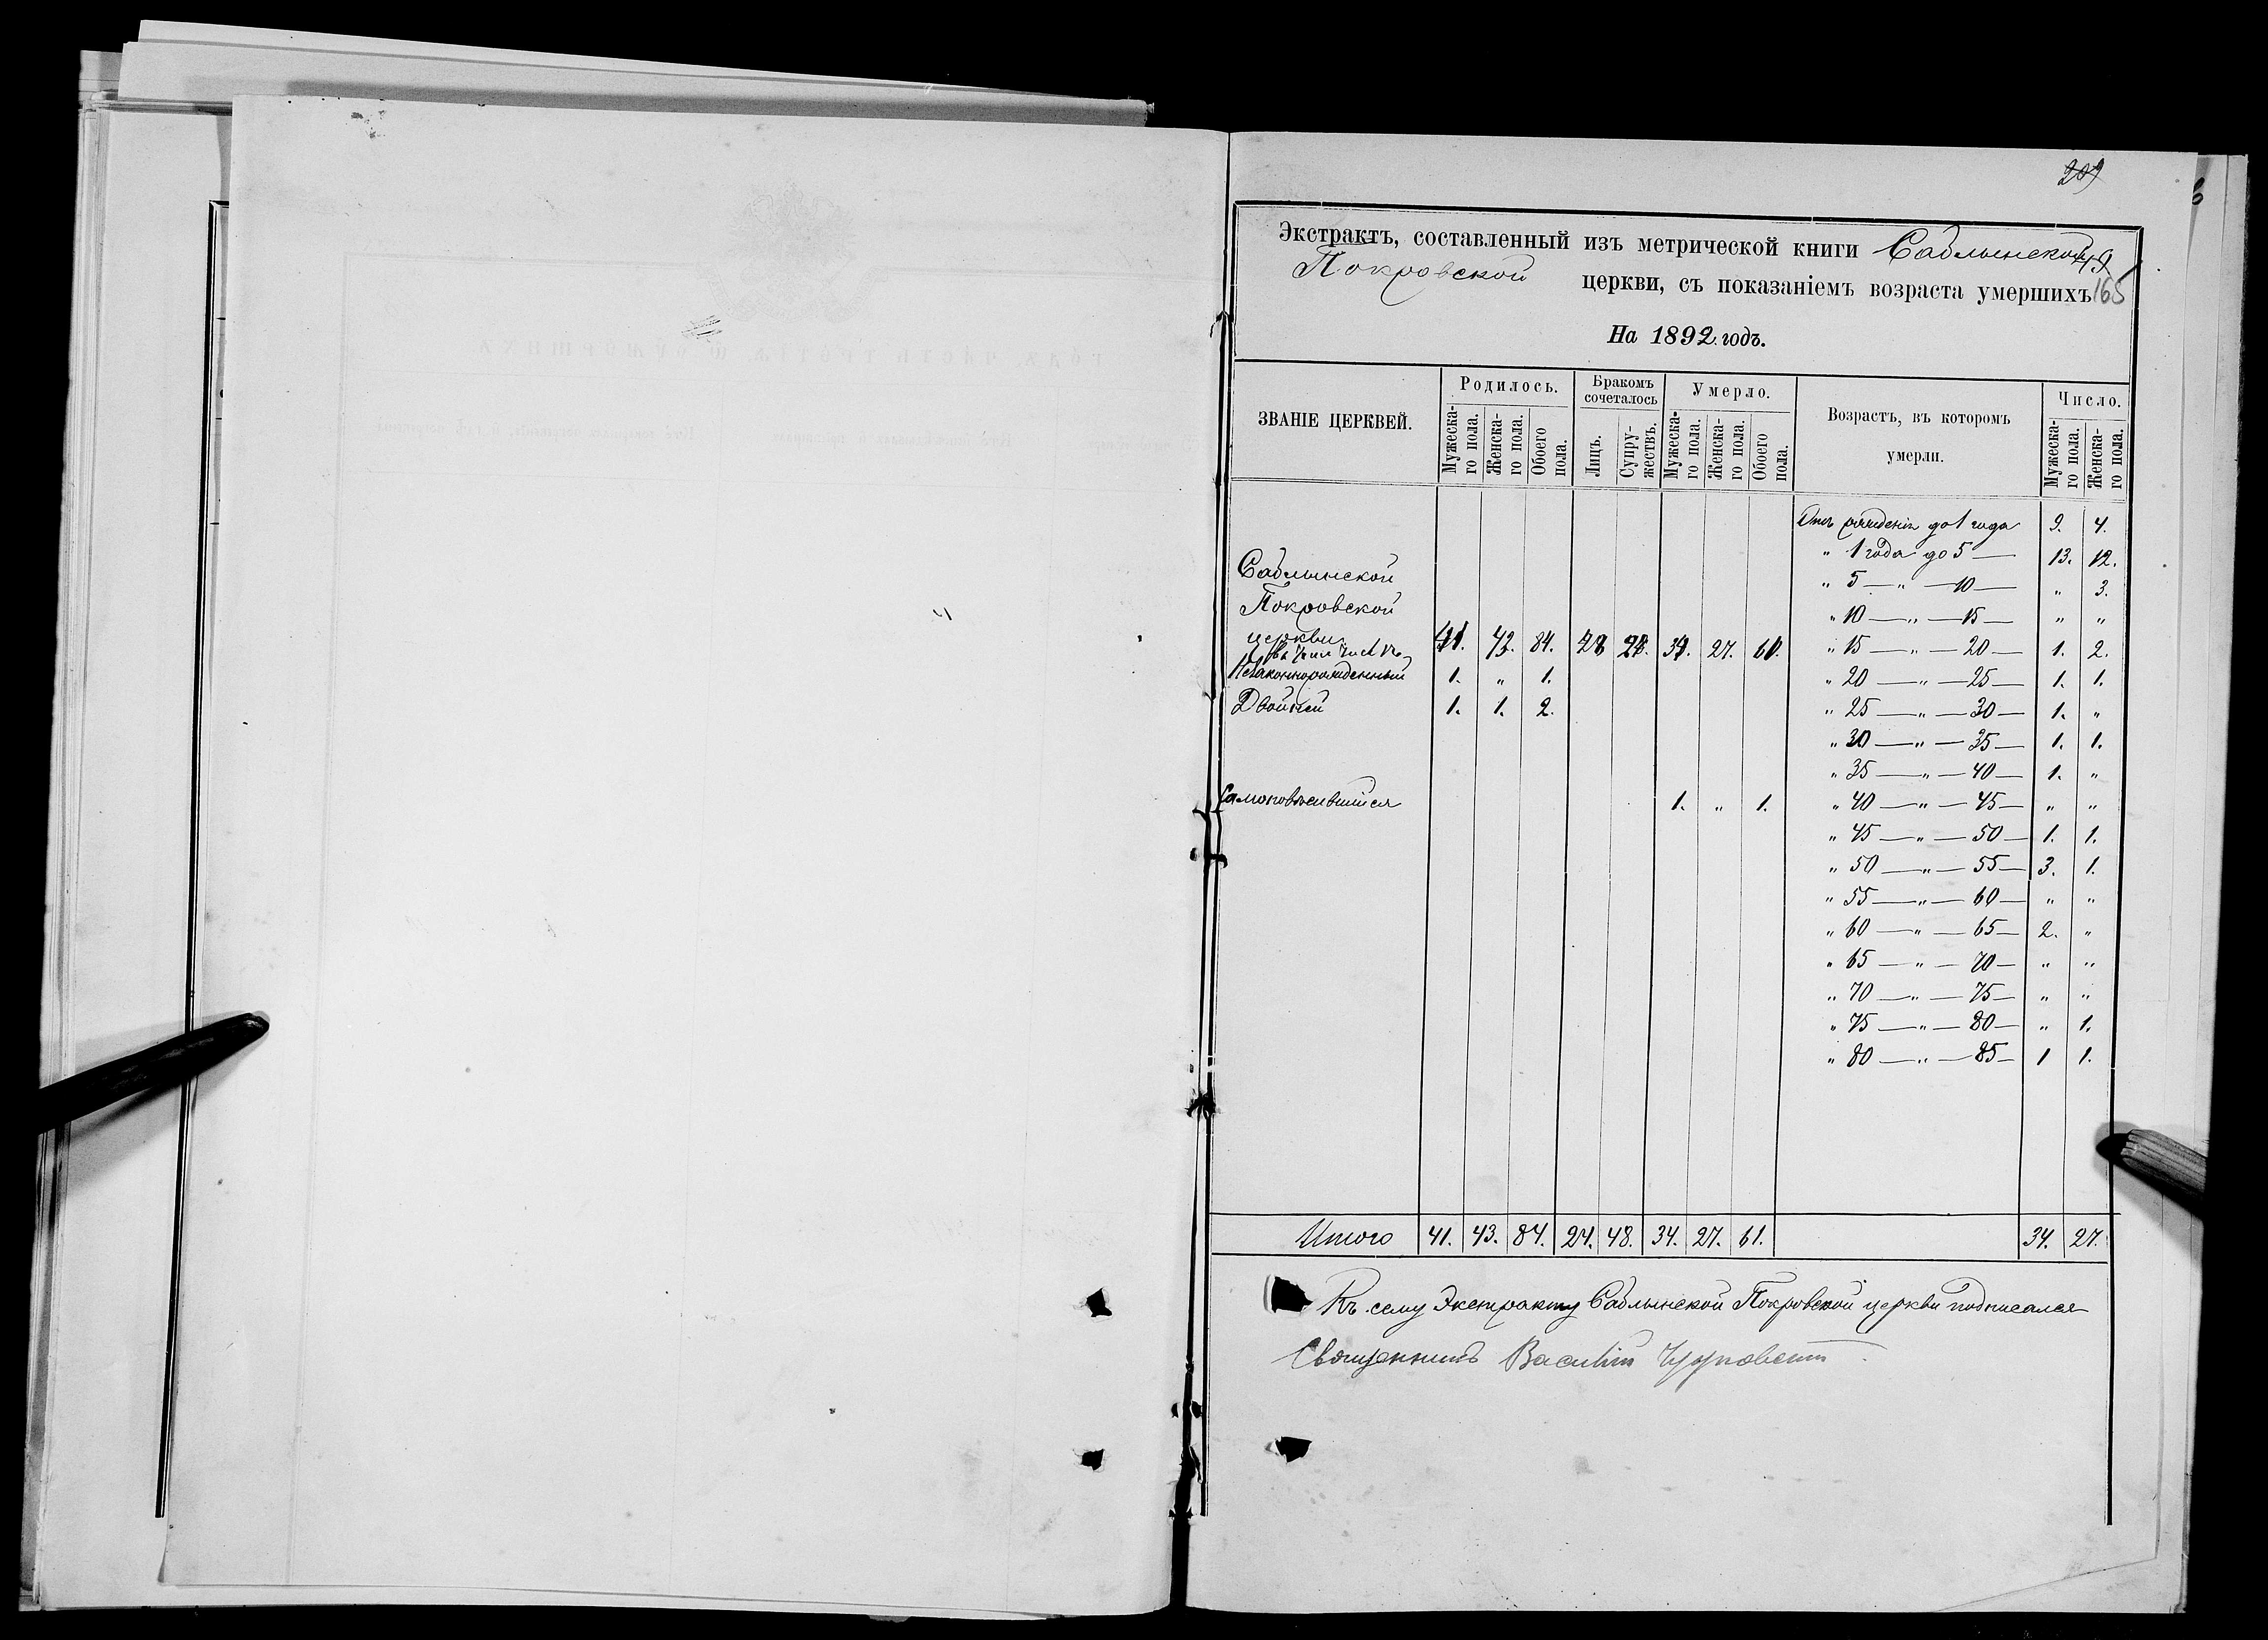 209
Экстрактъ, составленный изъ метрической книги Саблынской
49
Покровской церкви, съ показаніемъ возраста умершихъ
165
На 1892 годъ.
ЗВАНІЕ ЦЕРКВЕЙ. Родилось. Бракомъ сочеталось Умерло. Возрастъ, въ которомъ умерли. Число.
Мужеска-го пола. Женска-го пола. Обоего пола. Лицъ. Супру-жествъ. Мужеска-го пола. Женска-го пола. Обоего пола. Мужеска-го пола. Женска-го пола.
Отъ рожденія до 1 года 9. 4.
" 1 года до 5 — 13. 12.
Саблынской
" 5 — " — 10 — " 3.
Покровской
" 10 — " — 15 — " "
церкви 41. 43. 84. 34. 27. 61. " 15 — " — 20 — 1. 2.
въ томъ числѣ
Незаконнорожденный 1. " 1. " 20 — " — 25 — 1. 1.
Двойней 1. 1. 2. " 25 — " — 30 — 1. "
" 30 — " — 35 — 1. 1.
" 35 — " — 40 — 1. "
Самоповѣсившійся 1. " 1. " 40 — " — 45 — " "
" 45 — " — 50 — 1. 1.
" 50 — " — 55 — 3. 1.
" 55 — " — 60 — " "
" 60 — " — 65 — 2. "
" 65 — " — 70 — " "
" 70 — " — 75 — " "
" 75 — " — 80 — " 1.
" 80 — " — 85 — 1 1.
Итого 41. 43. 84. 24. 48. 34. 27. 61. 34. 27.
Къ сему Экстракту Саблынской Покровской церкви подписался
Священникъ Василій